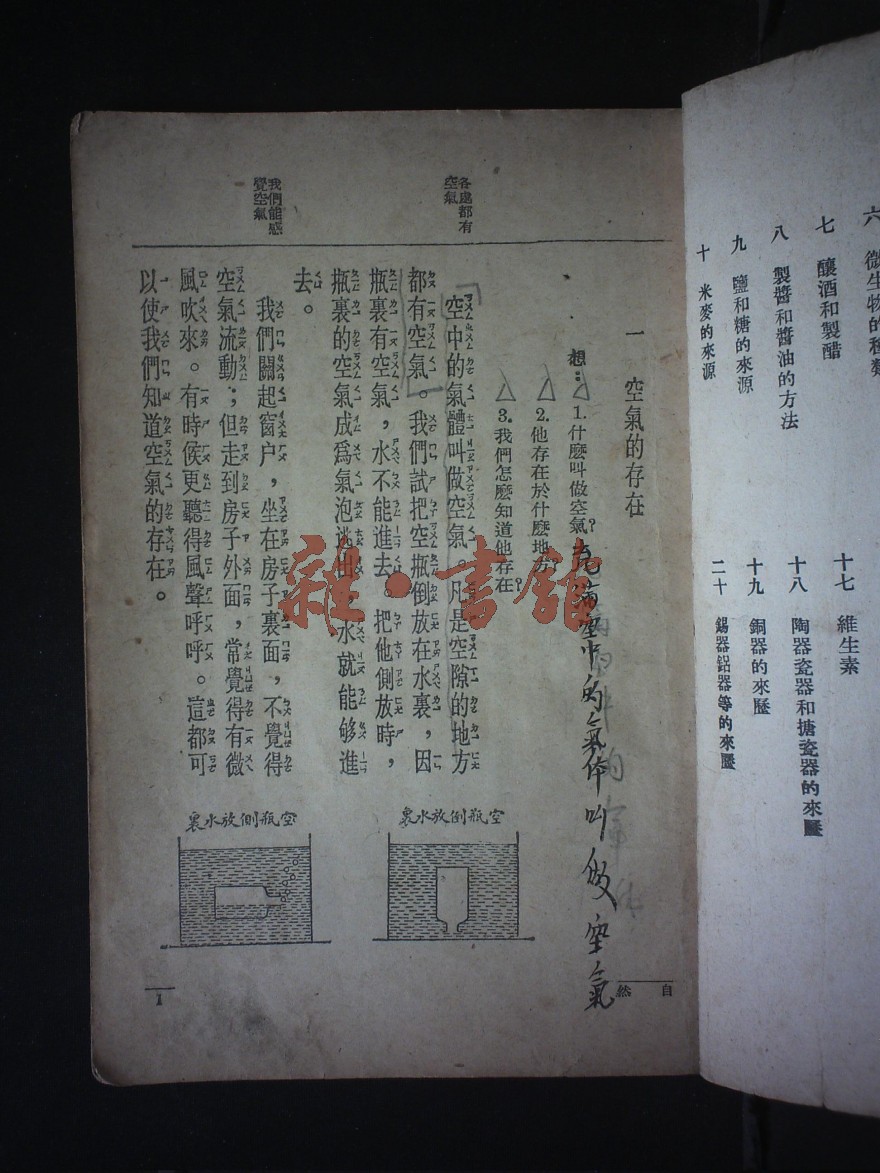 六 微生物的種類
七 釀酒和製醋
八 製醬和醬油的方法
九 鹽和糖的來源
十 米麥的來源
十七 維生素
十八 陶器瓷器和搪瓷器的來歷
十九 銅器的來歷
二十 錫器鋁器等的來歷
自然
一 空氣的存在
想：1.什麽叫做空氣？
充滿空中的氣体叫做空氣
2.他存在於什麽地方？
3.我們怎麽知道他存在？
各處都有
空氣
空中的氣體叫做空氣。凡是空隙的地方
都有空氣。我們試把空瓶倒放在水裏，因
瓶裏有空氣，水不能進去。把他側放時，
瓶裏的空氣成爲氣泡逃出，水就能够進
去。
我們能感
覺空氣
我們關起窗户，坐在房子裏面，不覺得
空氣流動；但走到房子外面，常覺得有微
風吹來。有時候更聽得風聲呼呼。這都可
以使我們知道空氣的存在。
空瓶倒放水裏
空瓶側放水裏
1
雜·書館